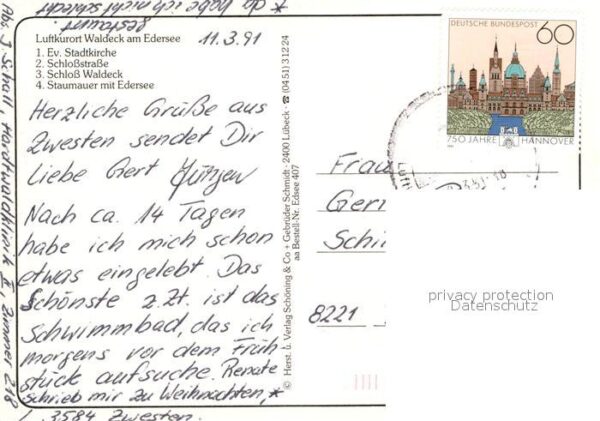 * da habe ich mich schlecht
gefühlt
Luftkurort Waldeck am Edersee
1. Ev. Stadtkirche
2. Schloßstraße
3. Schloß Waldeck
4. Staumauer mit Edersee
11.3.91
Herzliche Grüße aus
Zwesten sendet Dir
liebe Gert Jürgen
Nach ca. 14 Tagen
habe ich mich schon
etwas eingelebt. Das
Schönste z.Zt. ist das
Schwimmbad, das ich
morgens vor dem Früh
stück aufsuche. Renate
schrieb mir zu Weihnachten, *
Abs. J. Schall, Hardtwaldklinik II, Zimmer 218
/ 3584 Zwesten.
© Herst. u. Verlag Schöning & Co + Gebrüder Schmidt · 2400 Lübeck · ☎ (04 51) 3 12 24
aa Bestell-Nr. Edsee 407
DEUTSCHE BUNDESPOST 60
750 JAHRE HANNOVER
Frau
Ger
Schi
8221
privacy protection
Datenschutz